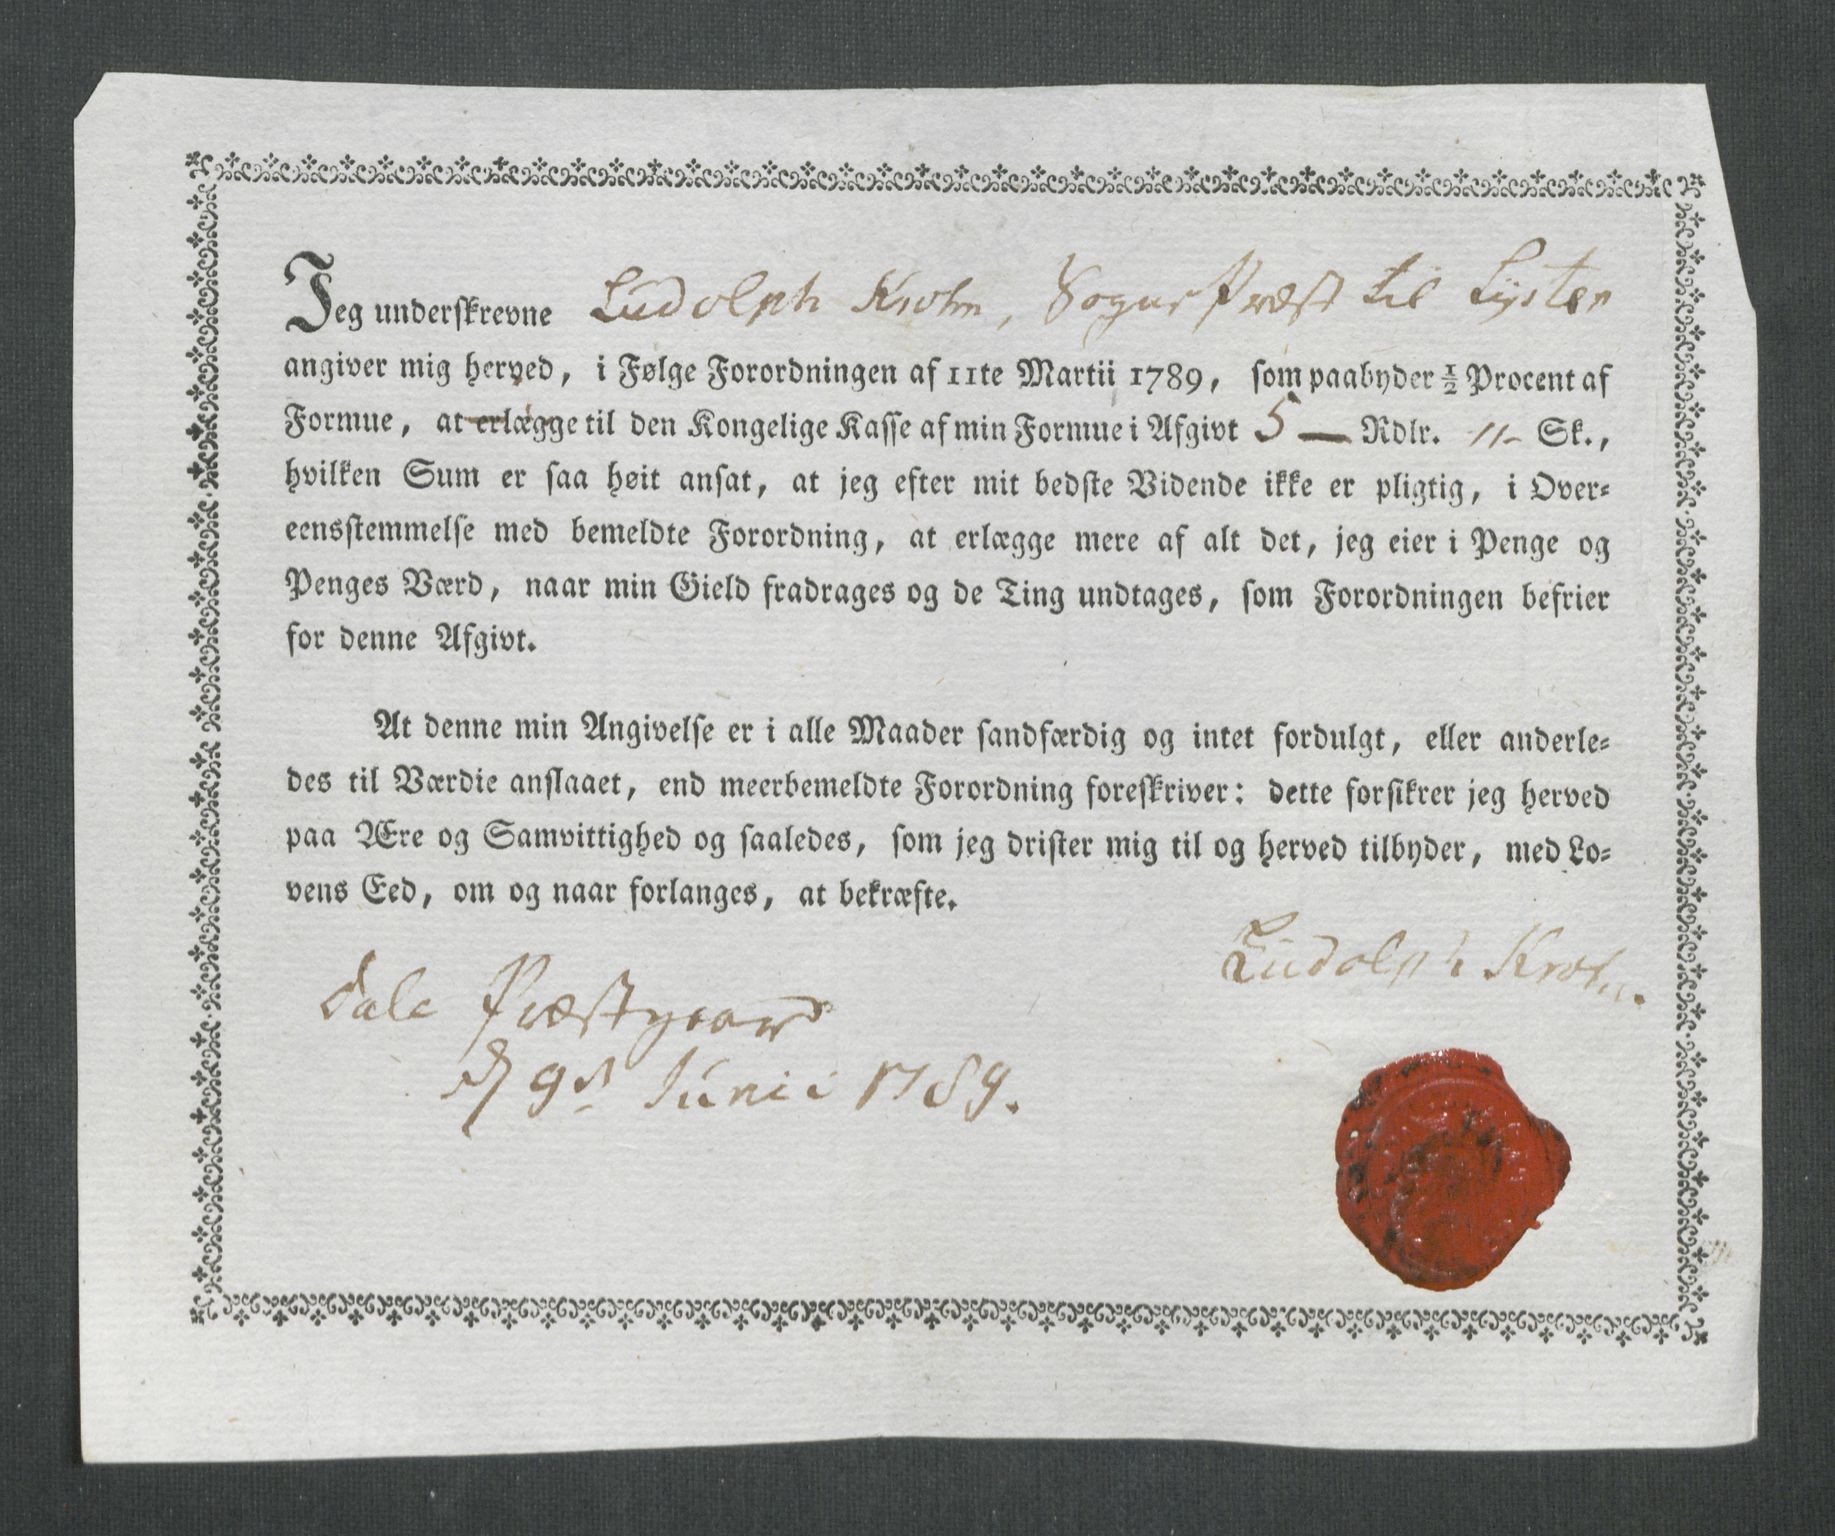 Jeg underskrevne Ludolph Krohn, Sogne Præst til Lyster
angiver mig herved, i Følge Forordningen af 11te Martii 1789, som paabyder ½ Procent af
Formue, at erlægge til den Kongelige Kasse af min Formue i Afgivt 5 — Rdlr. 11- Sk.,
hvilken Sum er saa høit ansat, at jeg efter mit bedste Vidende ikke er pligtig, i Over-
eensstemmelse med bemeldte Forordning, at erlægge mere af alt det, jeg eier i Penge og
Penges Værd, naar min Gield fradrages og de Ting undtages, som Forordningen befrier
for denne Afgivt.
At denne min Angivelse er i alle Maader sandfærdig og intet fordulgt, eller anderle-
des til Værdie anslaaet, end meerbemeldte Forordning foreskriver: dette forsikrer jeg herved
paa Ære og Samvittighed og saaledes, som jeg drister mig til og herved tilbyder, med Lo-
vens Eed, om og naar forlanges, at bekræfte.
Ludolph Krohn.
Dale Præstgaard
d 9d Junii 1789.